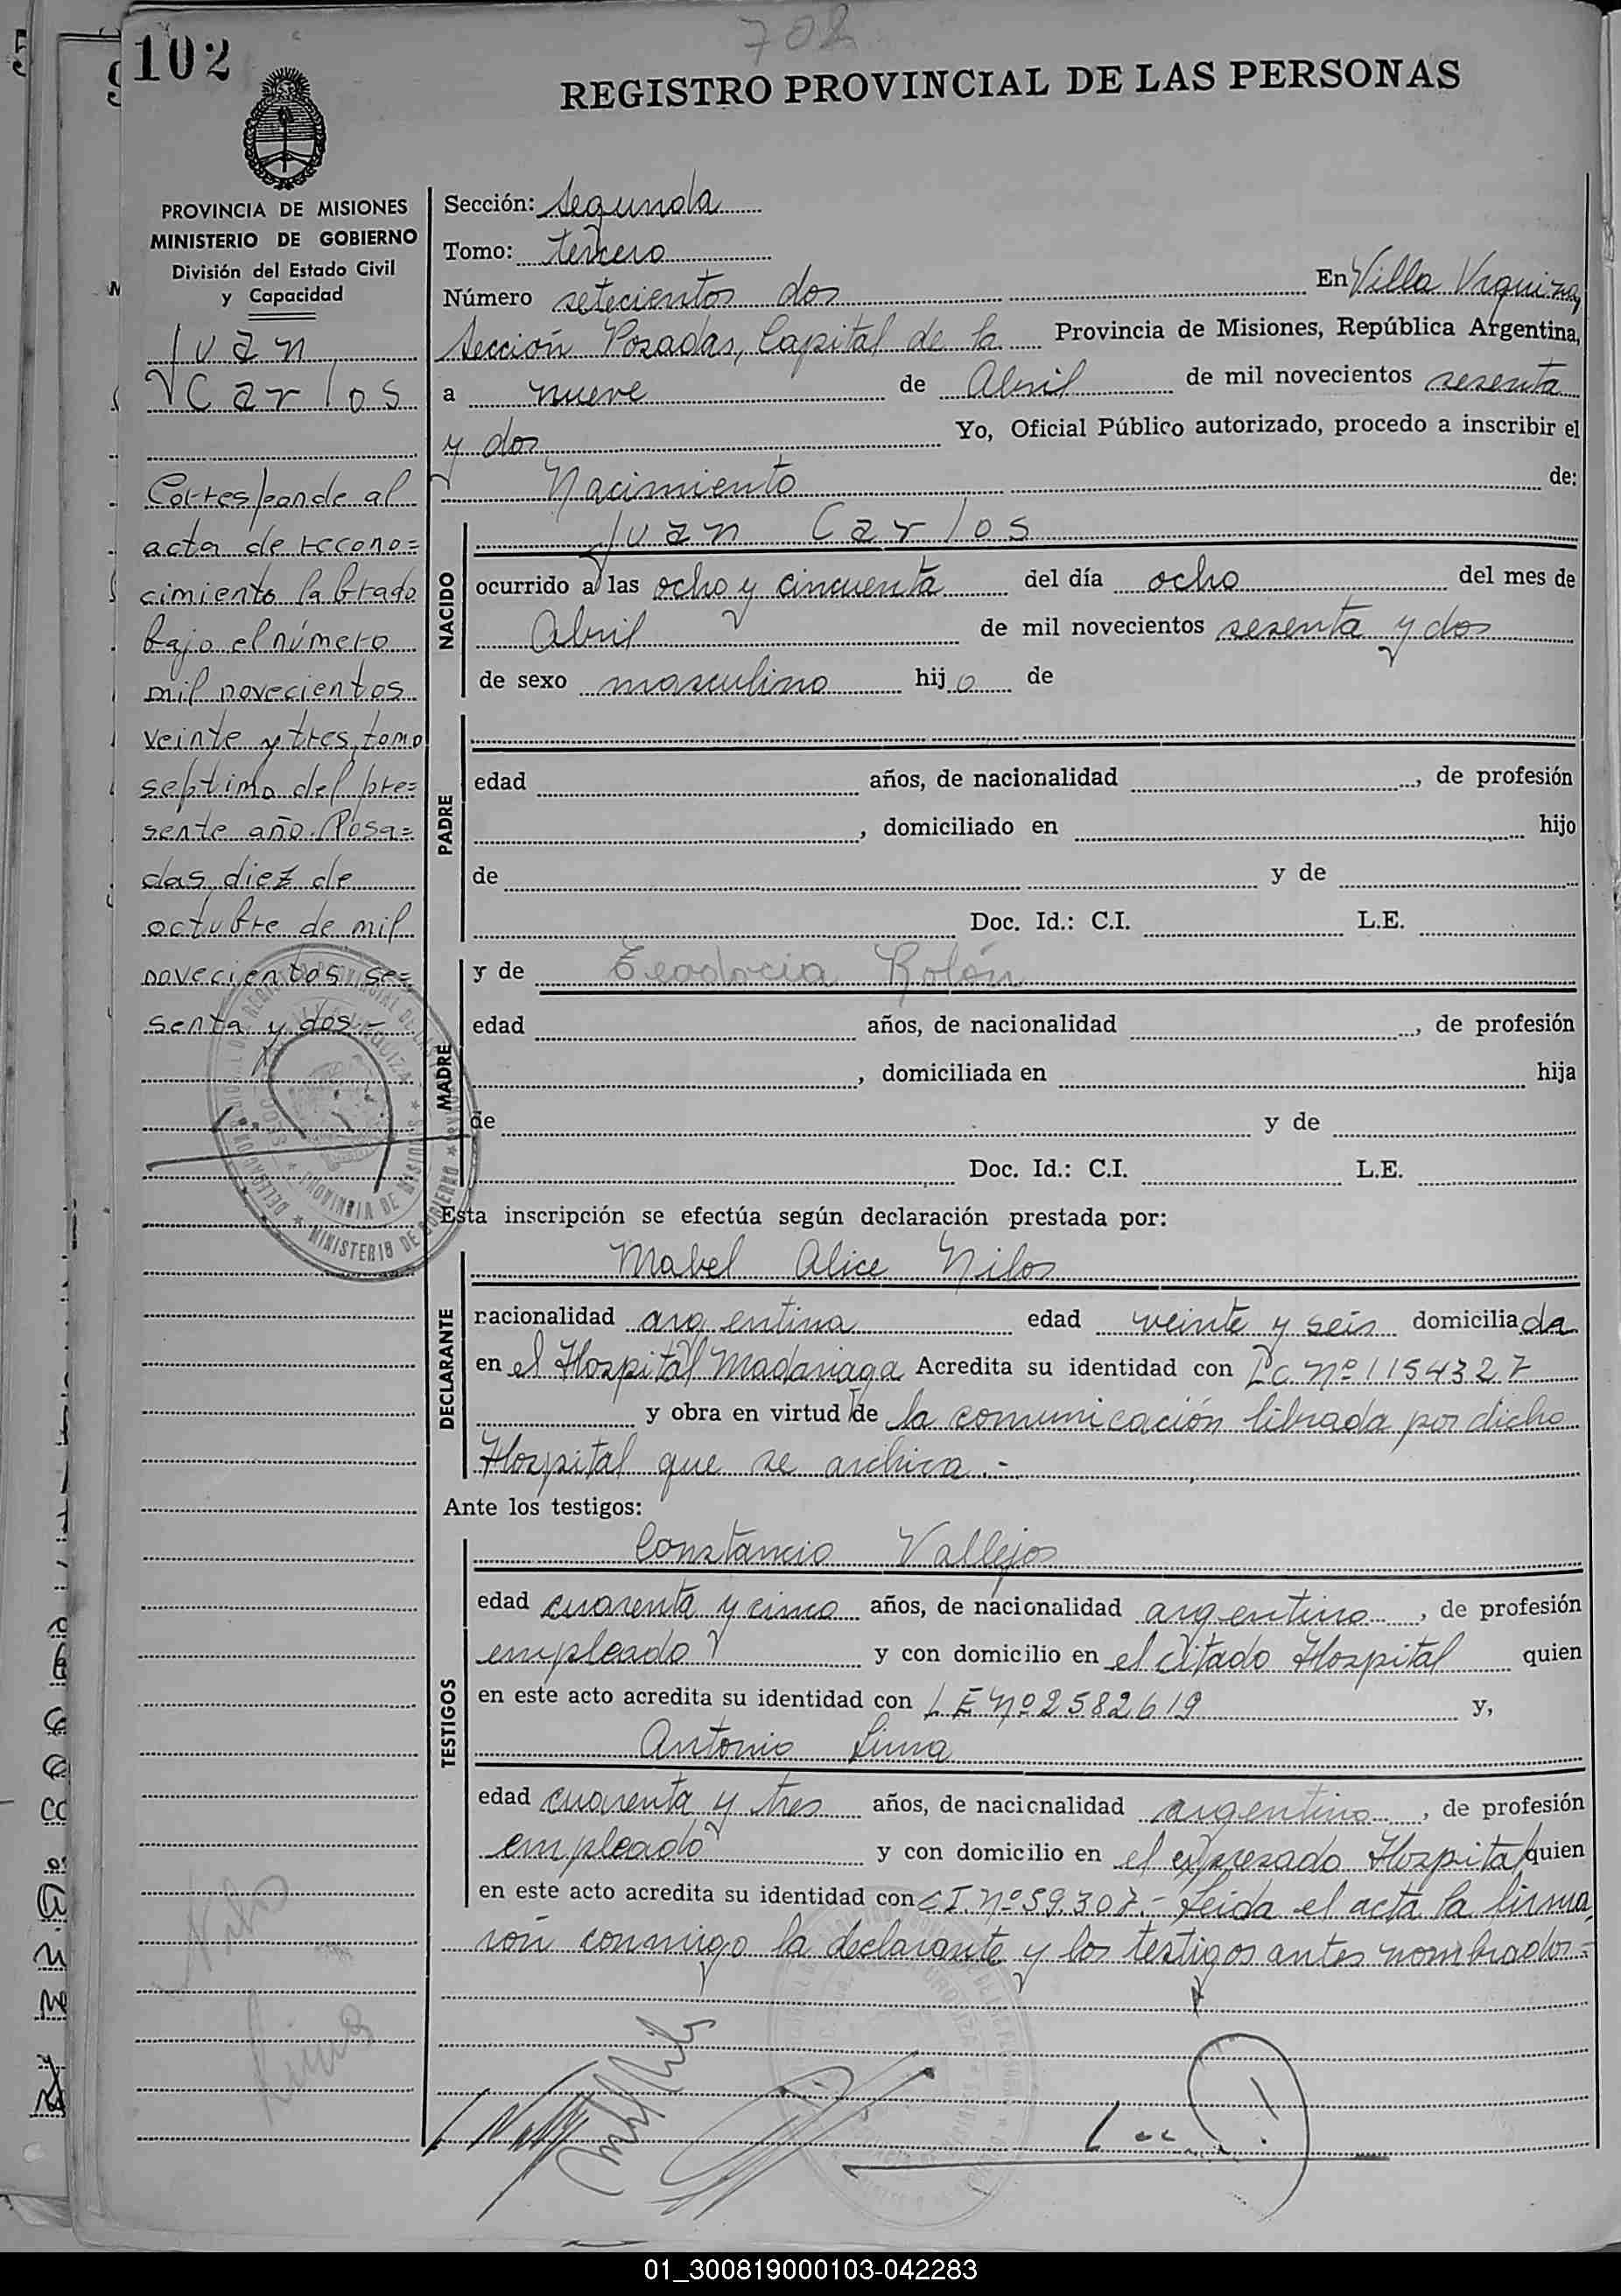 702
102
REGISTRO PROVINCIAL DE LAS PERSONAS
PROVINCIA DE MISIONES
MINISTERIO DE GOBIERNO
División del Estado Civil
y Capacidad
Juan
Carlos
Corresponde al
acta de recono=
cimiento labrado
bajo el número
mil novecientos
veinte y tres, tomo
septimo del pre=
sente año. Posa=
das, diez de
octubre de mil
novecientos se=
senta y dos.-
Sección: Segunda
Tomo: tercero
Número setecientos dos En Villa Urquiza,
Sección Posadas, Capital de la Provincia de Misiones, República Argentina,
a nueve de Abril de mil novecientos sesenta
y dos Yo, Oficial Público autorizado, procedo a inscribir el
Nacimiento de:
NACIDO
Juan Carlos
ocurrido a las ocho y cincuenta del día ocho del mes de
Abril de mil novecientos sesenta y dos
de sexo masculino hijo de
PADRE
edad años, de nacionalidad , de profesión
, domiciliado en hijo
de y de
Doc. Id.: C.I. L.E.
MADRE
y de Teodocia Rolón
edad años, de nacionalidad , de profesión
, domiciliada en hija
de y de
Doc. Id.: C.I. L.E.
Esta inscripción se efectúa según declaración prestada por:
DECLARANTE
Mabel Alice Nilos
nacionalidad argentina edad veinte y seis domiciliada
en el Hospital Madariaga Acredita su identidad con L.C. Nº 1154327
y obra en virtud de la comunicación librada por dicho
Hospital que se archiva.-
Ante los testigos:
TESTIGOS
Constancio Vallejos
edad cuarenta y cinco años, de nacionalidad argentino , de profesión
empleado y con domicilio en el citado Hospital quien
en este acto acredita su identidad con L E Nº 2582619 y,
Antonio Lima
edad cuarenta y tres años, de nacionalidad argentino , de profesión
empleado y con domicilio en el expresado Hospital quien
en este acto acredita su identidad con C I. Nº 59.307.- Leida el acta la firma
ron conmigo la declarante y los testigos antes nombrados.-
01_300819000103-042283